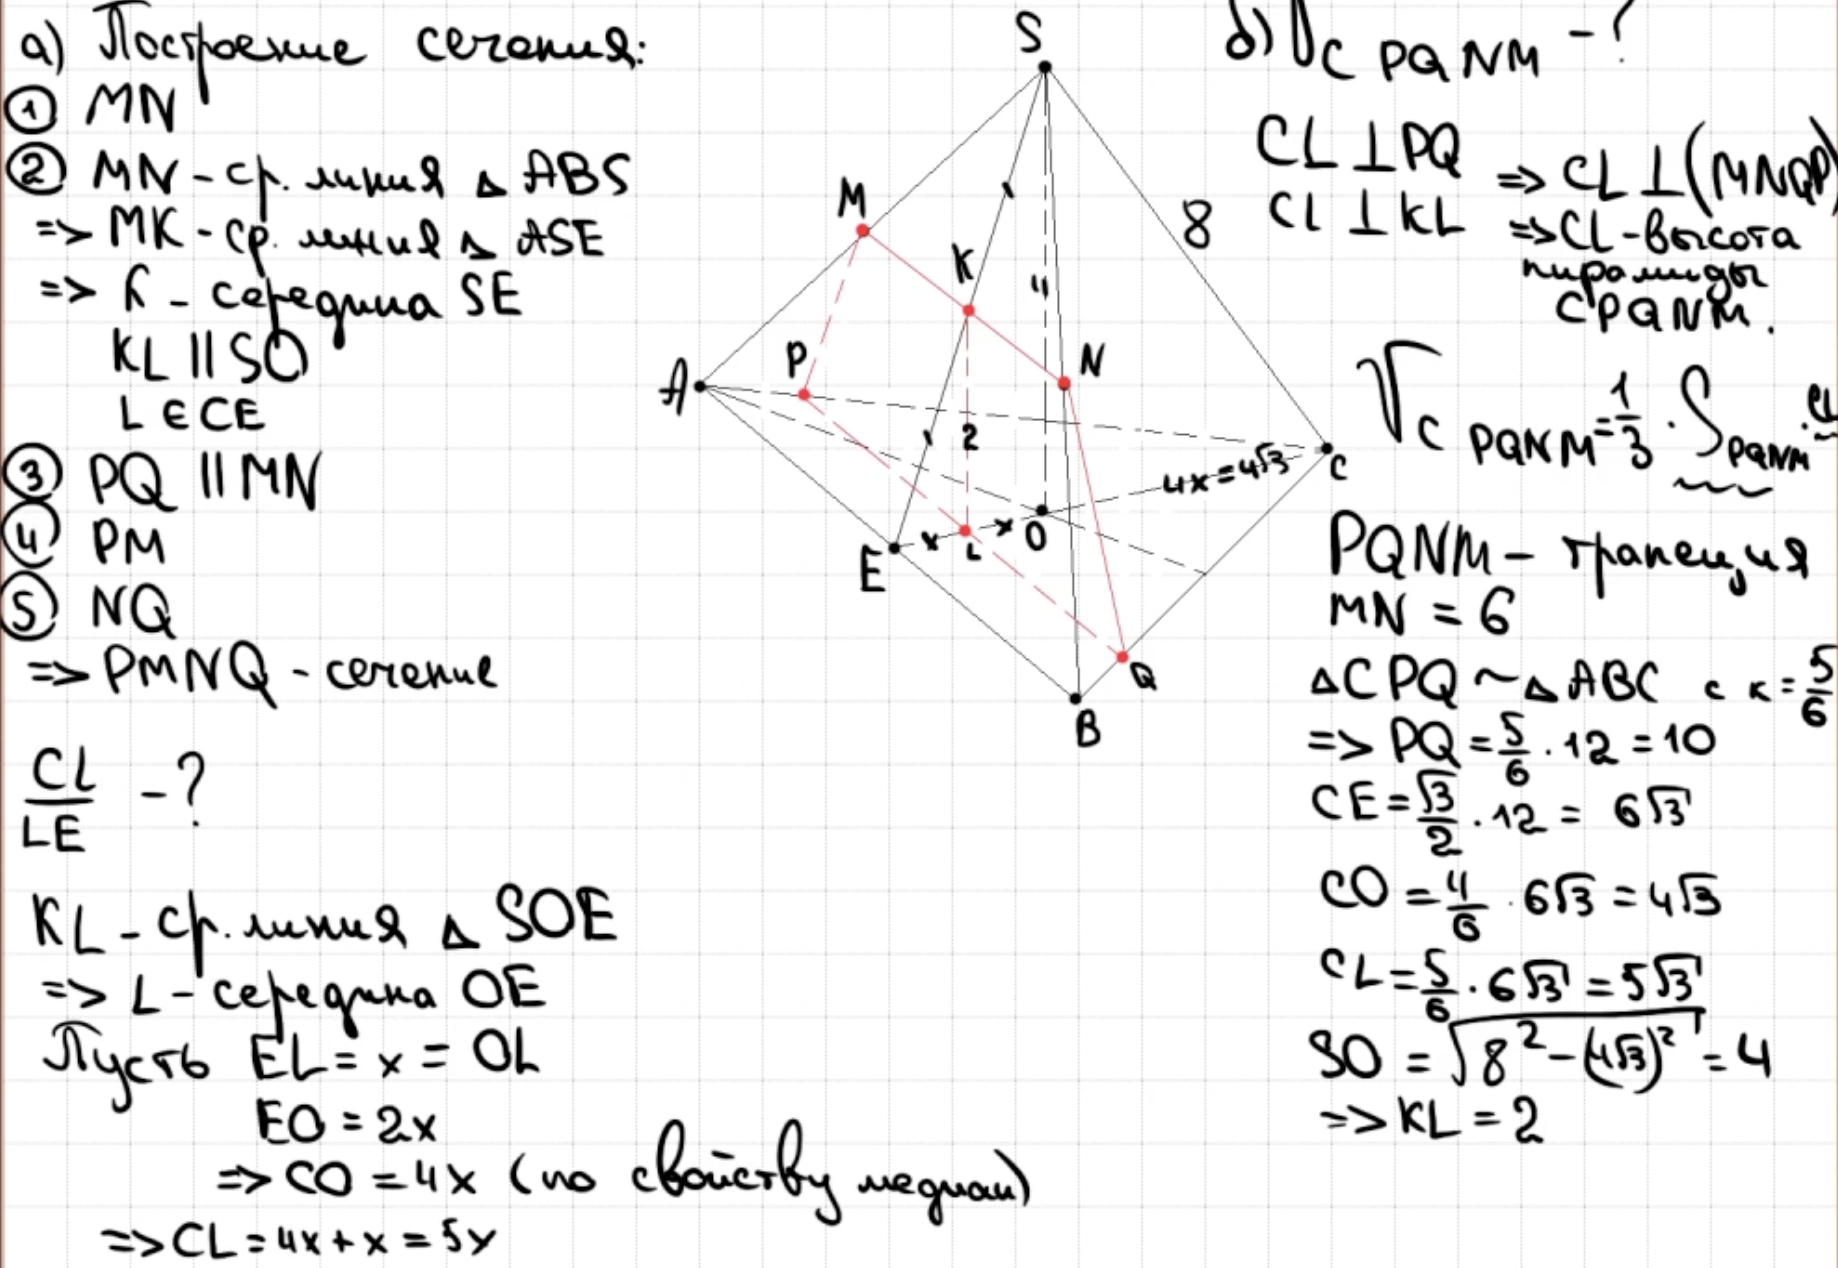 а) Построение сечения:
① MN
② MN - ср. линия △ ABS
=> MK - ср. линия △ ASE
=> K - середина SE
KL || SO
L ∈ CE
③ PQ || MN
④ PM
⑤ NQ
=> PMNQ - сечение
CL/LE - ?
KL - ср. линия △ SOE
=> L - середина OE
Пусть EL = x = OL
EO = 2x
=> CO = 4x (по свойству медиан)
=> CL = 4x + x = 5x
S
M
K
N
P
A
E
L
O
B
Q
C
8
4
2
x
x
4x = 4√3
б) V C PQNM - ?
CL ⊥ PQ
CL ⊥ KL
=> CL ⊥ (MNQP)
=> CL - высота
пирамиды
CPQNM.
V C PQNM = 1/3 · S PQNM · CL
PQNM - трапеция
MN = 6
△CPQ ~ △ABC с к = 5/6
=> PQ = 5/6 · 12 = 10
CE = √3/2 · 12 = 6√3
CO = 4/6 · 6√3 = 4√3
CL = 5/6 · 6√3 = 5√3
SO = √(8² - (4√3)²) = 4
=> KL = 2